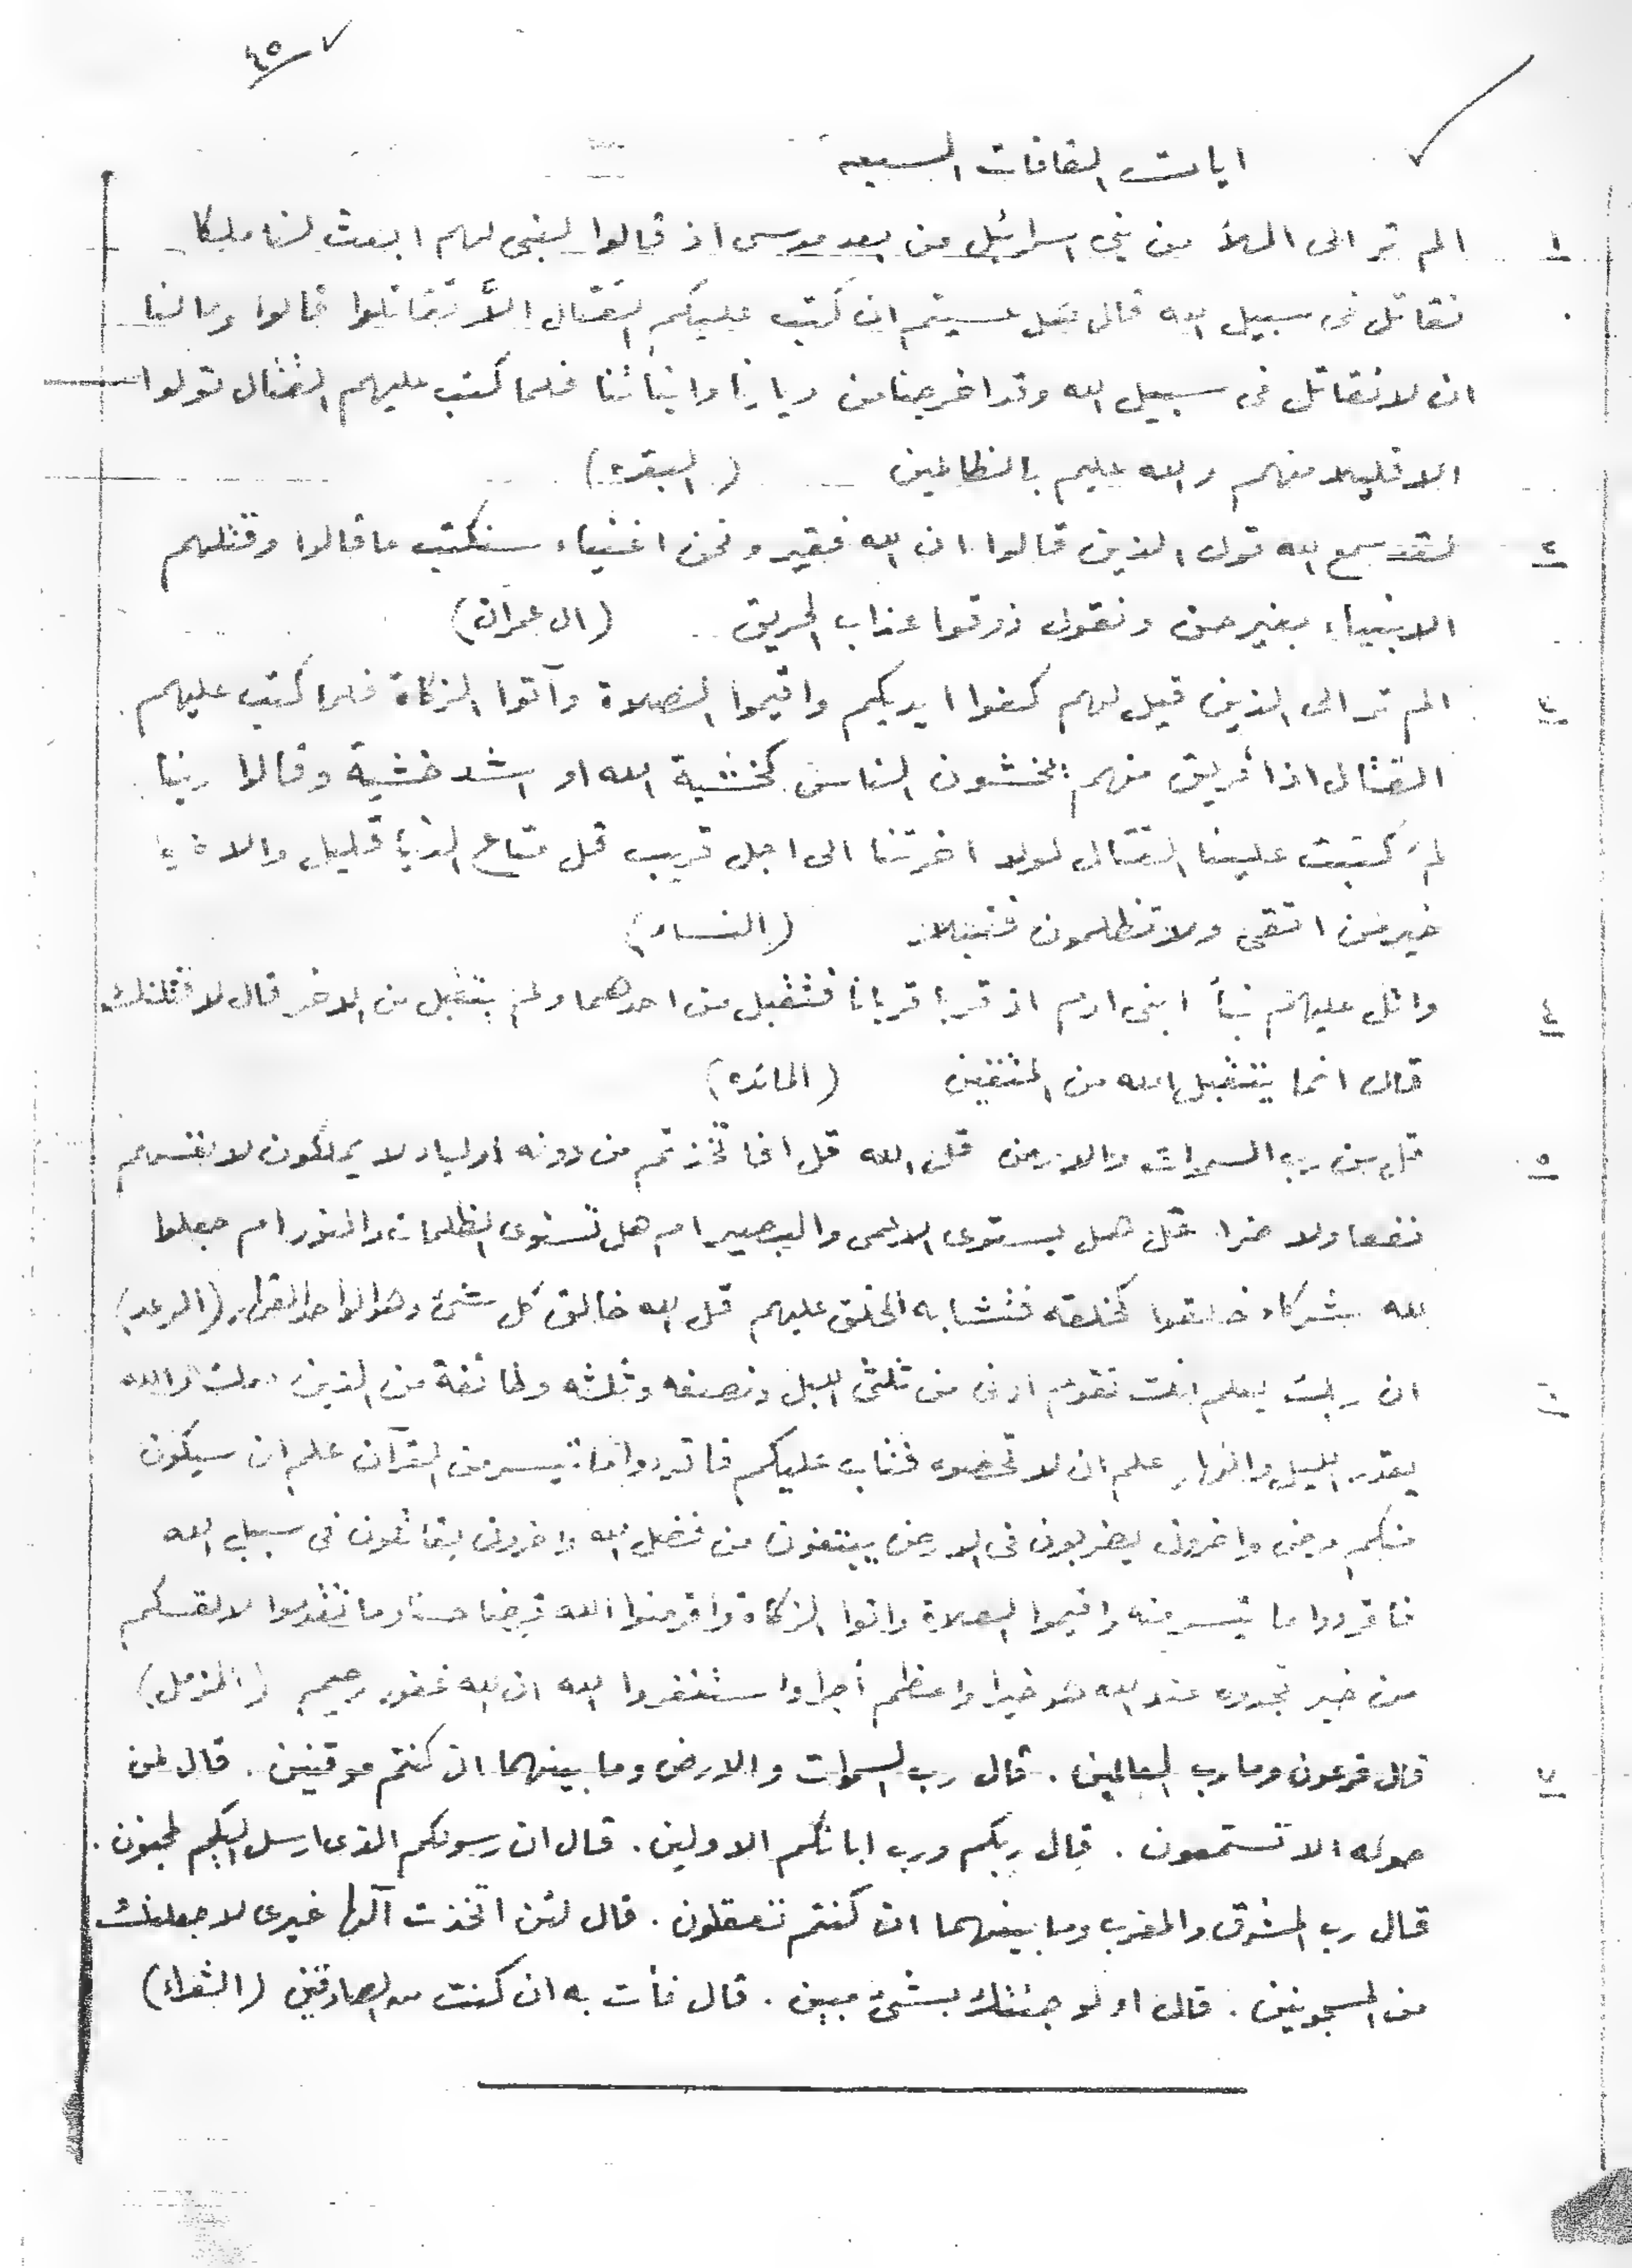 ٤٥
ايات القافات السبعه
١ الم تر الى الملأ من بني اسرائيل من بعد موسى اذ قالوا لنبى لهم ابعث لنا ملكا
نقاتل فى سبيل الله قال هل عسيتم ان كتب عليكم القتال الاّ تقاتلوا قالوا وما لنا
ان لا نقاتل فى سبيل الله وقد اخرجنا من ديارنا وابنائنا فلما كتب عليهم القتال تولوا
الا قليلا منهم والله عليم بالظالمين (البقره)
٢ لقد سمع الله قول الذين قالوا ان الله فقير ونحن اغنياء سنكتب ما قالوا وقتلهم
الانبياء بغير حق ونقول ذوقوا عذاب الحريق (ال عمران)
٣ الم تر الى الذين قيل لهم كفوا ايديكم واقيموا الصلاة وآتوا الزكاة فلما كتب عليهم
القتال اذا فريق منهم يخشون الناس كخشية الله او اشد خشية وقالوا ربنا
لم كتبت علينا القتال لولا اخرتنا الى اجل قريب قل متاع الدنيا قليل والاخرة
خير لمن اتقى ولا تظلمون فتيلا (النساء)
٤ واتل عليهم نبأ ابنى ادم اذ قربا قربانا فتقبل من احدهما ولم يتقبل من الاخر قال لاقتلنك
قال انما يتقبل الله من المتقين (المائده)
٥ قل من رب السموات والارض قل الله قل افاتخذتم من دونه اولياء لا يملكون لانفسهم
نفعا ولا ضرا قل هل يستوى الاعمى والبصير ام هل تستوى الظلمات والنور ام جعلوا
لله شركاء خلقوا كخلقه فتشابه الخلق عليهم قل الله خالق كل شئ وهو الواحد القهار (الرعد)
٦ ان ربك يعلم انك تقوم ادنى من ثلثى الليل ونصفه وثلثه وطائفة من الذين معك والله
يقدر الليل والنهار علم ان لا تحصوه فتاب عليكم فاقروا ما تيسر من القرآن علم ان سيكون
منكم مرضى واخرون يضربون فى الارض يبتغون من فضل الله واخرون يقاتلون فى سبيل الله
فاقروا ما تيسر منه واقيموا الصلاة واتوا الزكاة واقرضوا الله قرضا حسنا وما تقدموا لانفسكم
من خير تجدوه عند الله هو خيرا واعظم أجرا واستغفروا الله ان الله غفور رحيم (المزمل)
٧ قال فرعون وما رب العالمين . قال رب السموات والارض وما بينهما ان كنتم موقنين . قال لمن
حوله الا تستمعون . قال ربكم ورب ابائكم الاولين . قال ان رسولكم الذى ارسل اليكم لمجنون .
قال رب المشرق والمغرب وما بينهما ان كنتم تعقلون . قال لئن اتخذت آلها غيرى لاجعلنك
من المسجونين . قال اولو جئتك بشئ مبين . قال فأت به ان كنت من الصادقين (الشعراء)